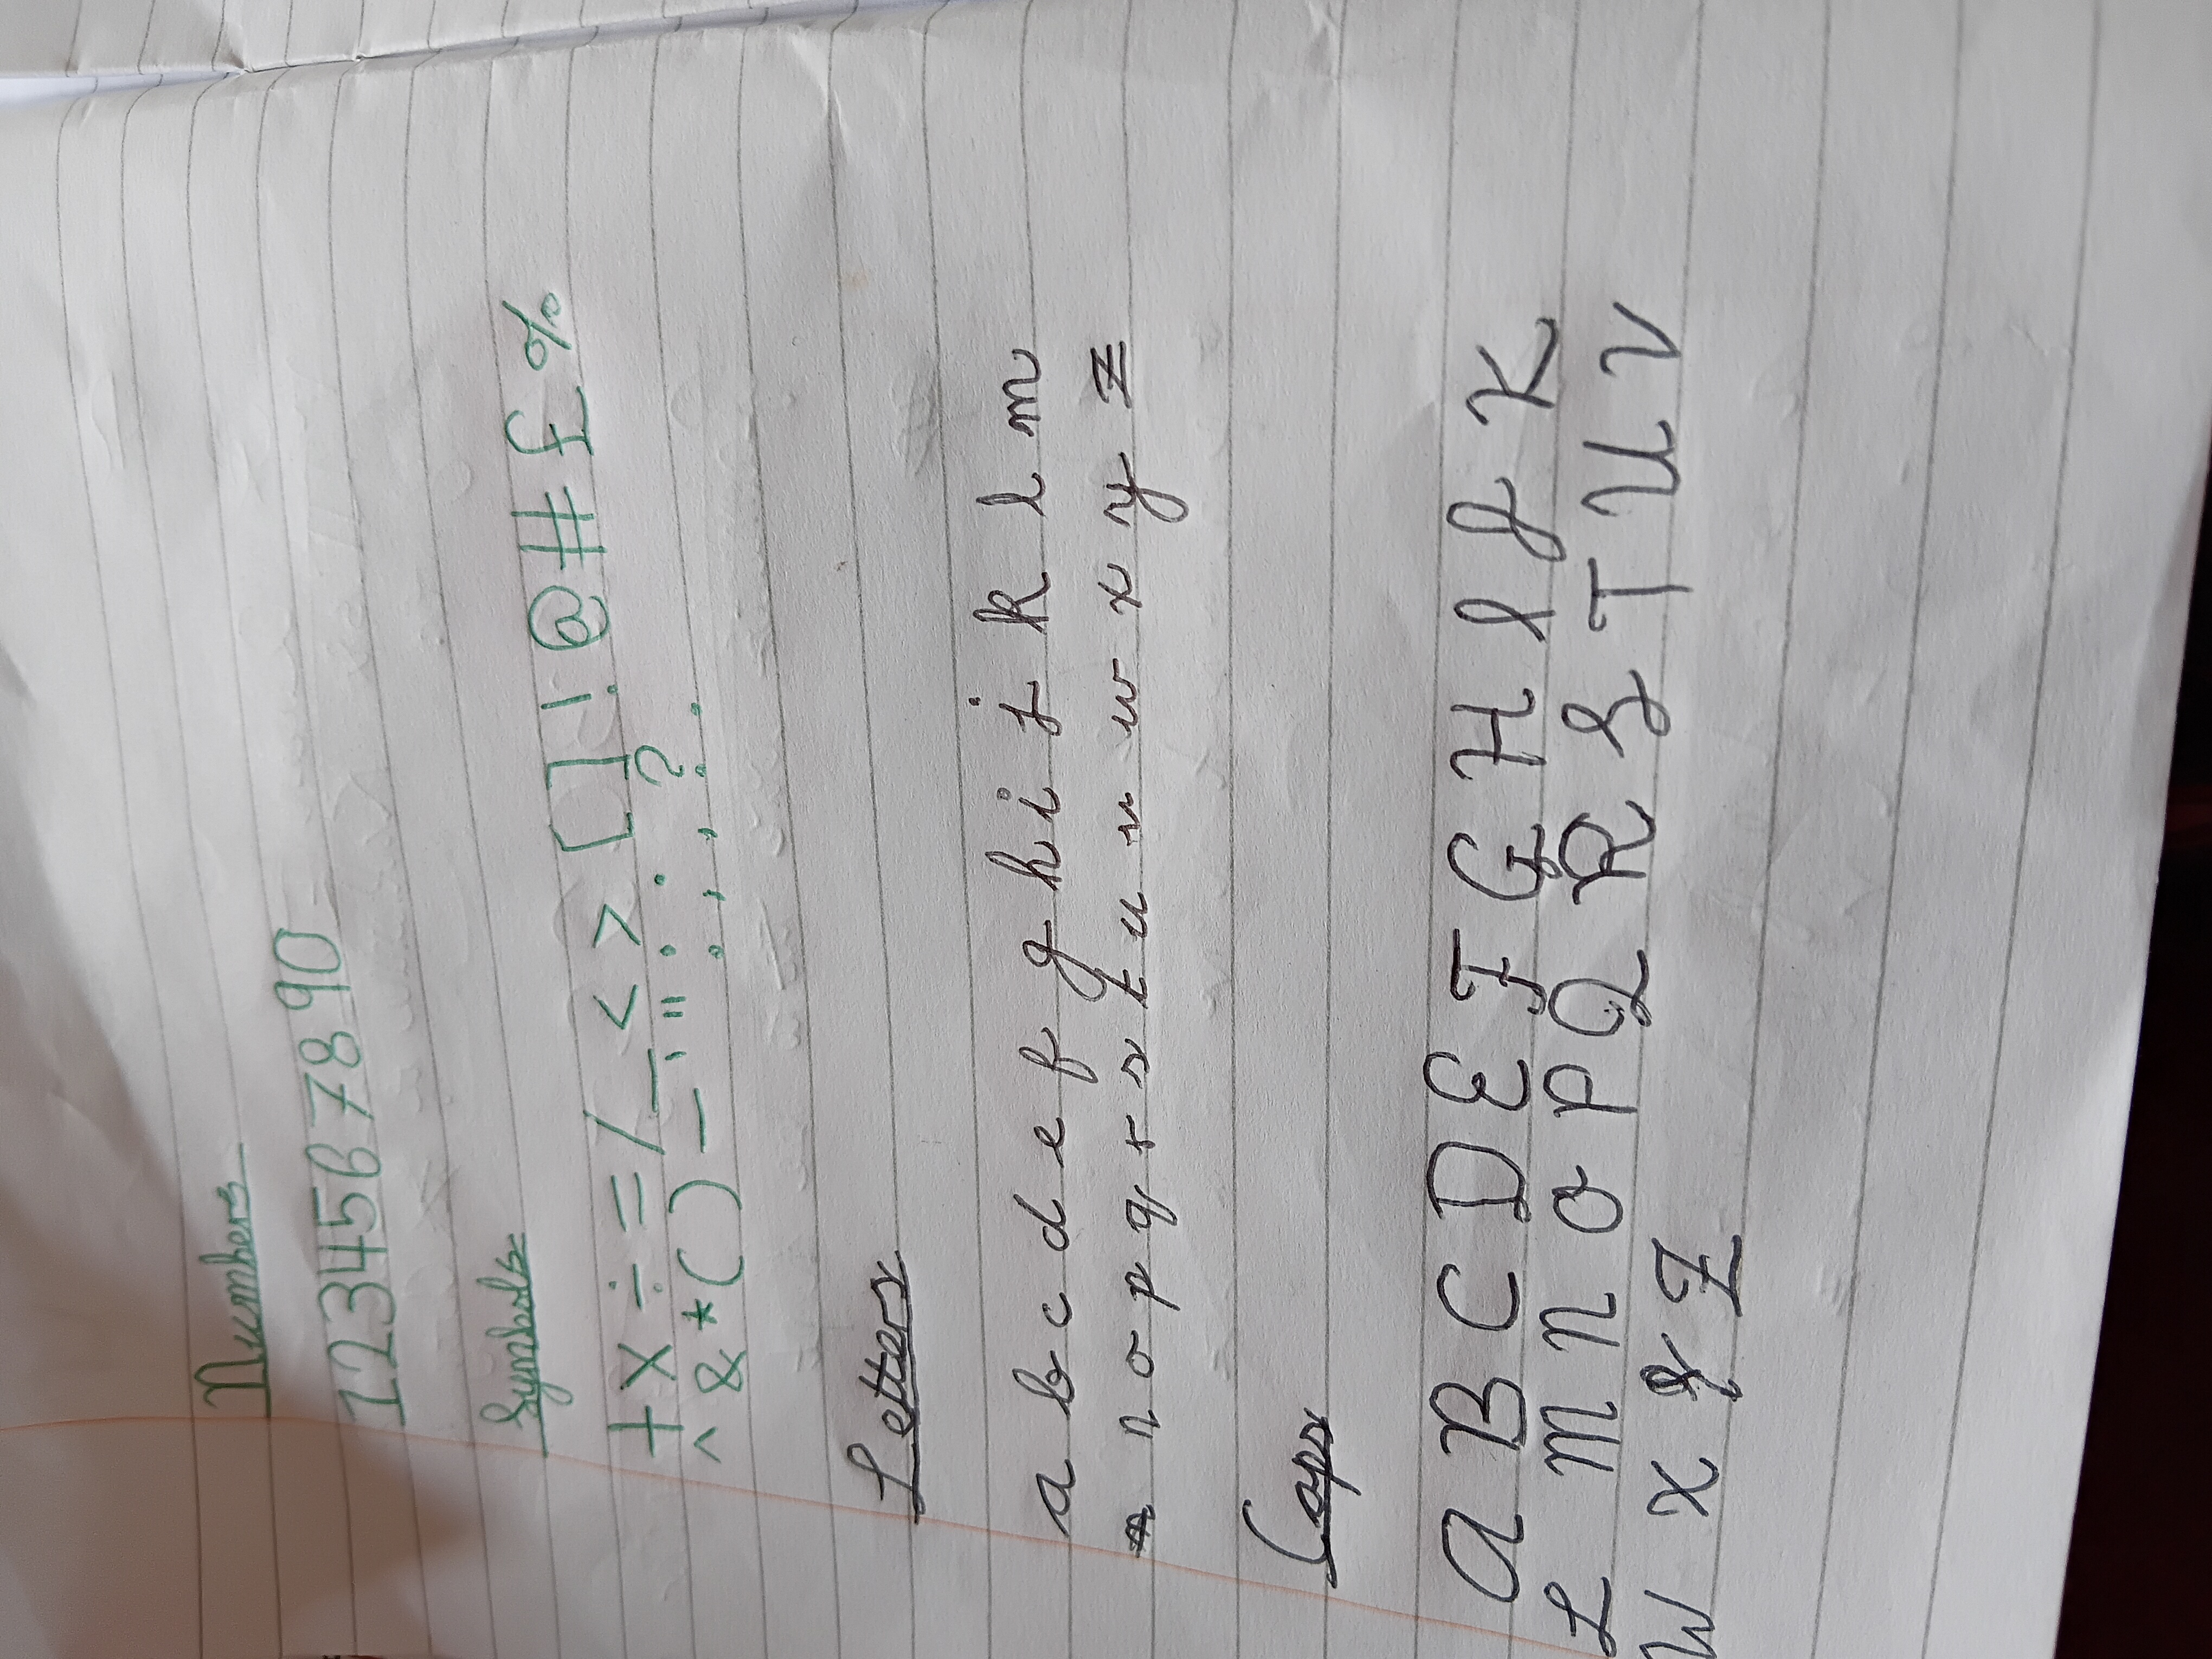 Numbers
1234567890
Symbols
+ x ÷ = / _ < > [ ] ! @ # £ %
^ & * ( ) _ - ' " : ; , ?
Letters
a b c d e f g h i j k l m
n o p q r s t u v w x y z
Caps
A B C D E F G H I J K
L M N O P Q R S T U V
W X Y Z